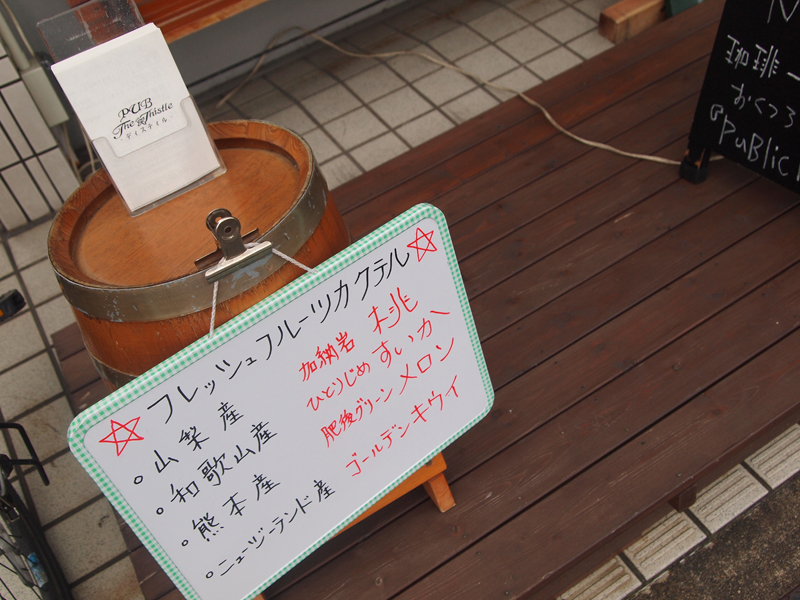 PUB
The Thistle
- ディスティル -
☆フレッシュフルーツカクテル☆
○山梨産 加納岩 桃
○和歌山産 ひとりじめ すいか
○熊本産 肥後グリーン メロン
○ニュージーランド産 ゴールデンキウイ
珈琲一
おくつろ
@PUBlic